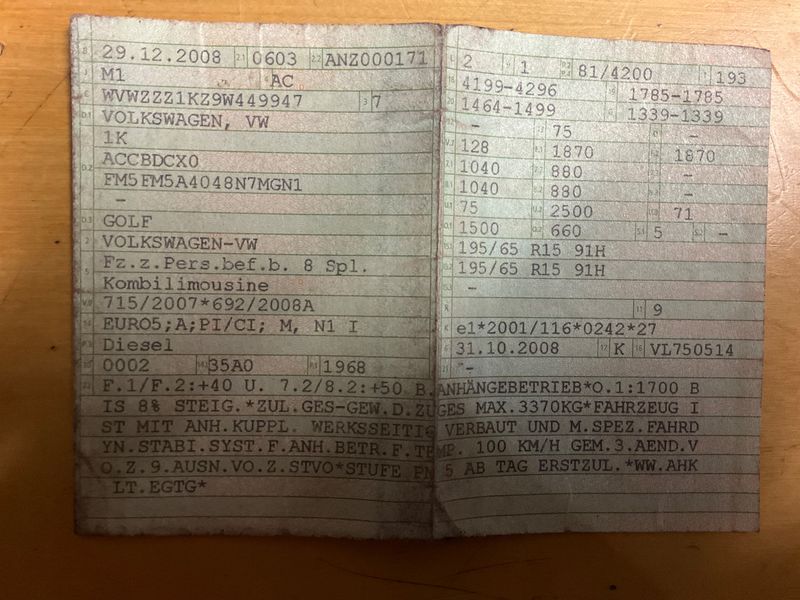 B 29.12.2008 2.1 0603 2.2 ANZ000171
J M1 AC
E WVWZZZ1KZ9W449947 3 7
D.1 VOLKSWAGEN, VW
1K
D.2 ACCBDCX0
FM5FM5A4048N7MGN1
-
D.3 GOLF
2 VOLKSWAGEN-VW
5 Fz.z.Pers.bef.b. 8 Spl.
Kombilimousine
V.9 715/2007*692/2008A
14 EURO5;A;PI/CI; M, N1 I
P.3 Diesel
10 0002 14.1 35A0 P.1 1968
L 2 9 1 P.2 P.4 81/4200 T 193
18 4199-4296 19 1785-1785
20 1464-1499 G 1339-1339
- 13 75 -
V.7 128 F.1 1870 F.2 1870
7.1 1040 7.2 880 -
8.1 1040 8.2 880 -
U.1 75 U.2 2500 U.3 71
O.1 1500 O.2 660 S.1 5 S.2 -
15.1 195/65 R15 91H
15.2 195/65 R15 91H
-
11 9
K e1*2001/116*0242*27
6 31.10.2008 17 K 16 VL750514
21 -
22 F.1/F.2:+40 U. 7.2/8.2:+50 B.ANHÄNGEBETRIEB*O.1:1700 B
IS 8% STEIG.*ZUL.GES-GEW.D.ZUGES MAX.3370KG*FAHRZEUG I
ST MIT ANH.KUPPL. WERKSSEITIG VERBAUT UND M.SPEZ.FAHRD
YN.STABI.SYST.F.ANH.BETR.F.TEMP. 100 KM/H GEM.3.AEND.V
O.Z.9.AUSN.VO.Z.STVO*STUFE PM 5 AB TAG ERSTZUL.*WW.AHK
LT.EGTG*